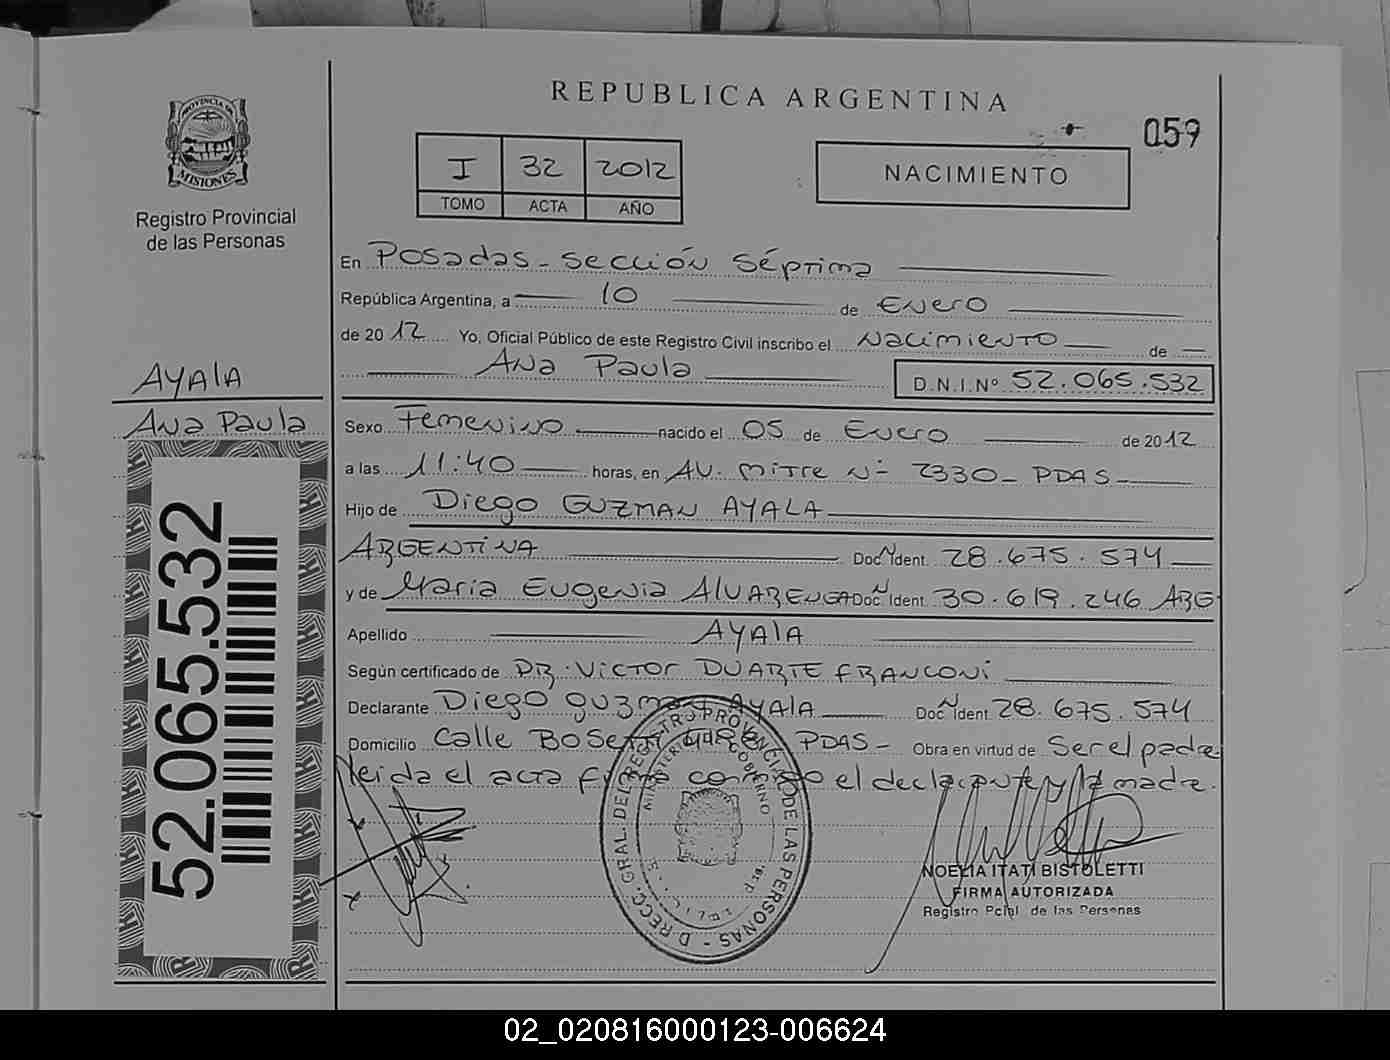 REPUBLICA ARGENTINA
059
PROVINCIA DE
MISIONES
Registro Provincial
de las Personas
I 32 2012
TOMO ACTA AÑO
NACIMIENTO
En Posadas - Sección Séptima
República Argentina, a 10 de Enero
de 2012 Yo, Oficial Público de este Registro Civil inscribo el Nacimiento de
Ana Paula D.N.I.Nº 52.065.532
AYALA
Ana Paula
52.065.532
Sexo Femenino nacido el 05 de Enero de 2012
a las 11:40 horas, en AV. Mitre Nº 2330 - PDAS -
Hijo de Diego GUZMAN AYALA
ARGENTINA Doc. Ident. 28.675.574
y de Maria Eugenia ALVARENGA Doc. Ident. 30.619.246 ARG
Apellido AYALA
Según certificado de DR. Victor DUARTE FRANCONi
Declarante Diego guzman AYALA Doc. Ident. 28.675.574
Domicilio Calle BOSETTI PDAS - Obra en virtud de Ser el padre
leida el acta firma conmigo el declarante y la madre.
D RECC. GRAL. DEL REGISTRO PROVINCIAL DE LAS PERSONAS -
MINISTERIO DE GOBIERNO
NOELIA ITATI BISTOLETTI
FIRMA AUTORIZADA
Registro Pcial. de las Personas
02_020816000123-006624